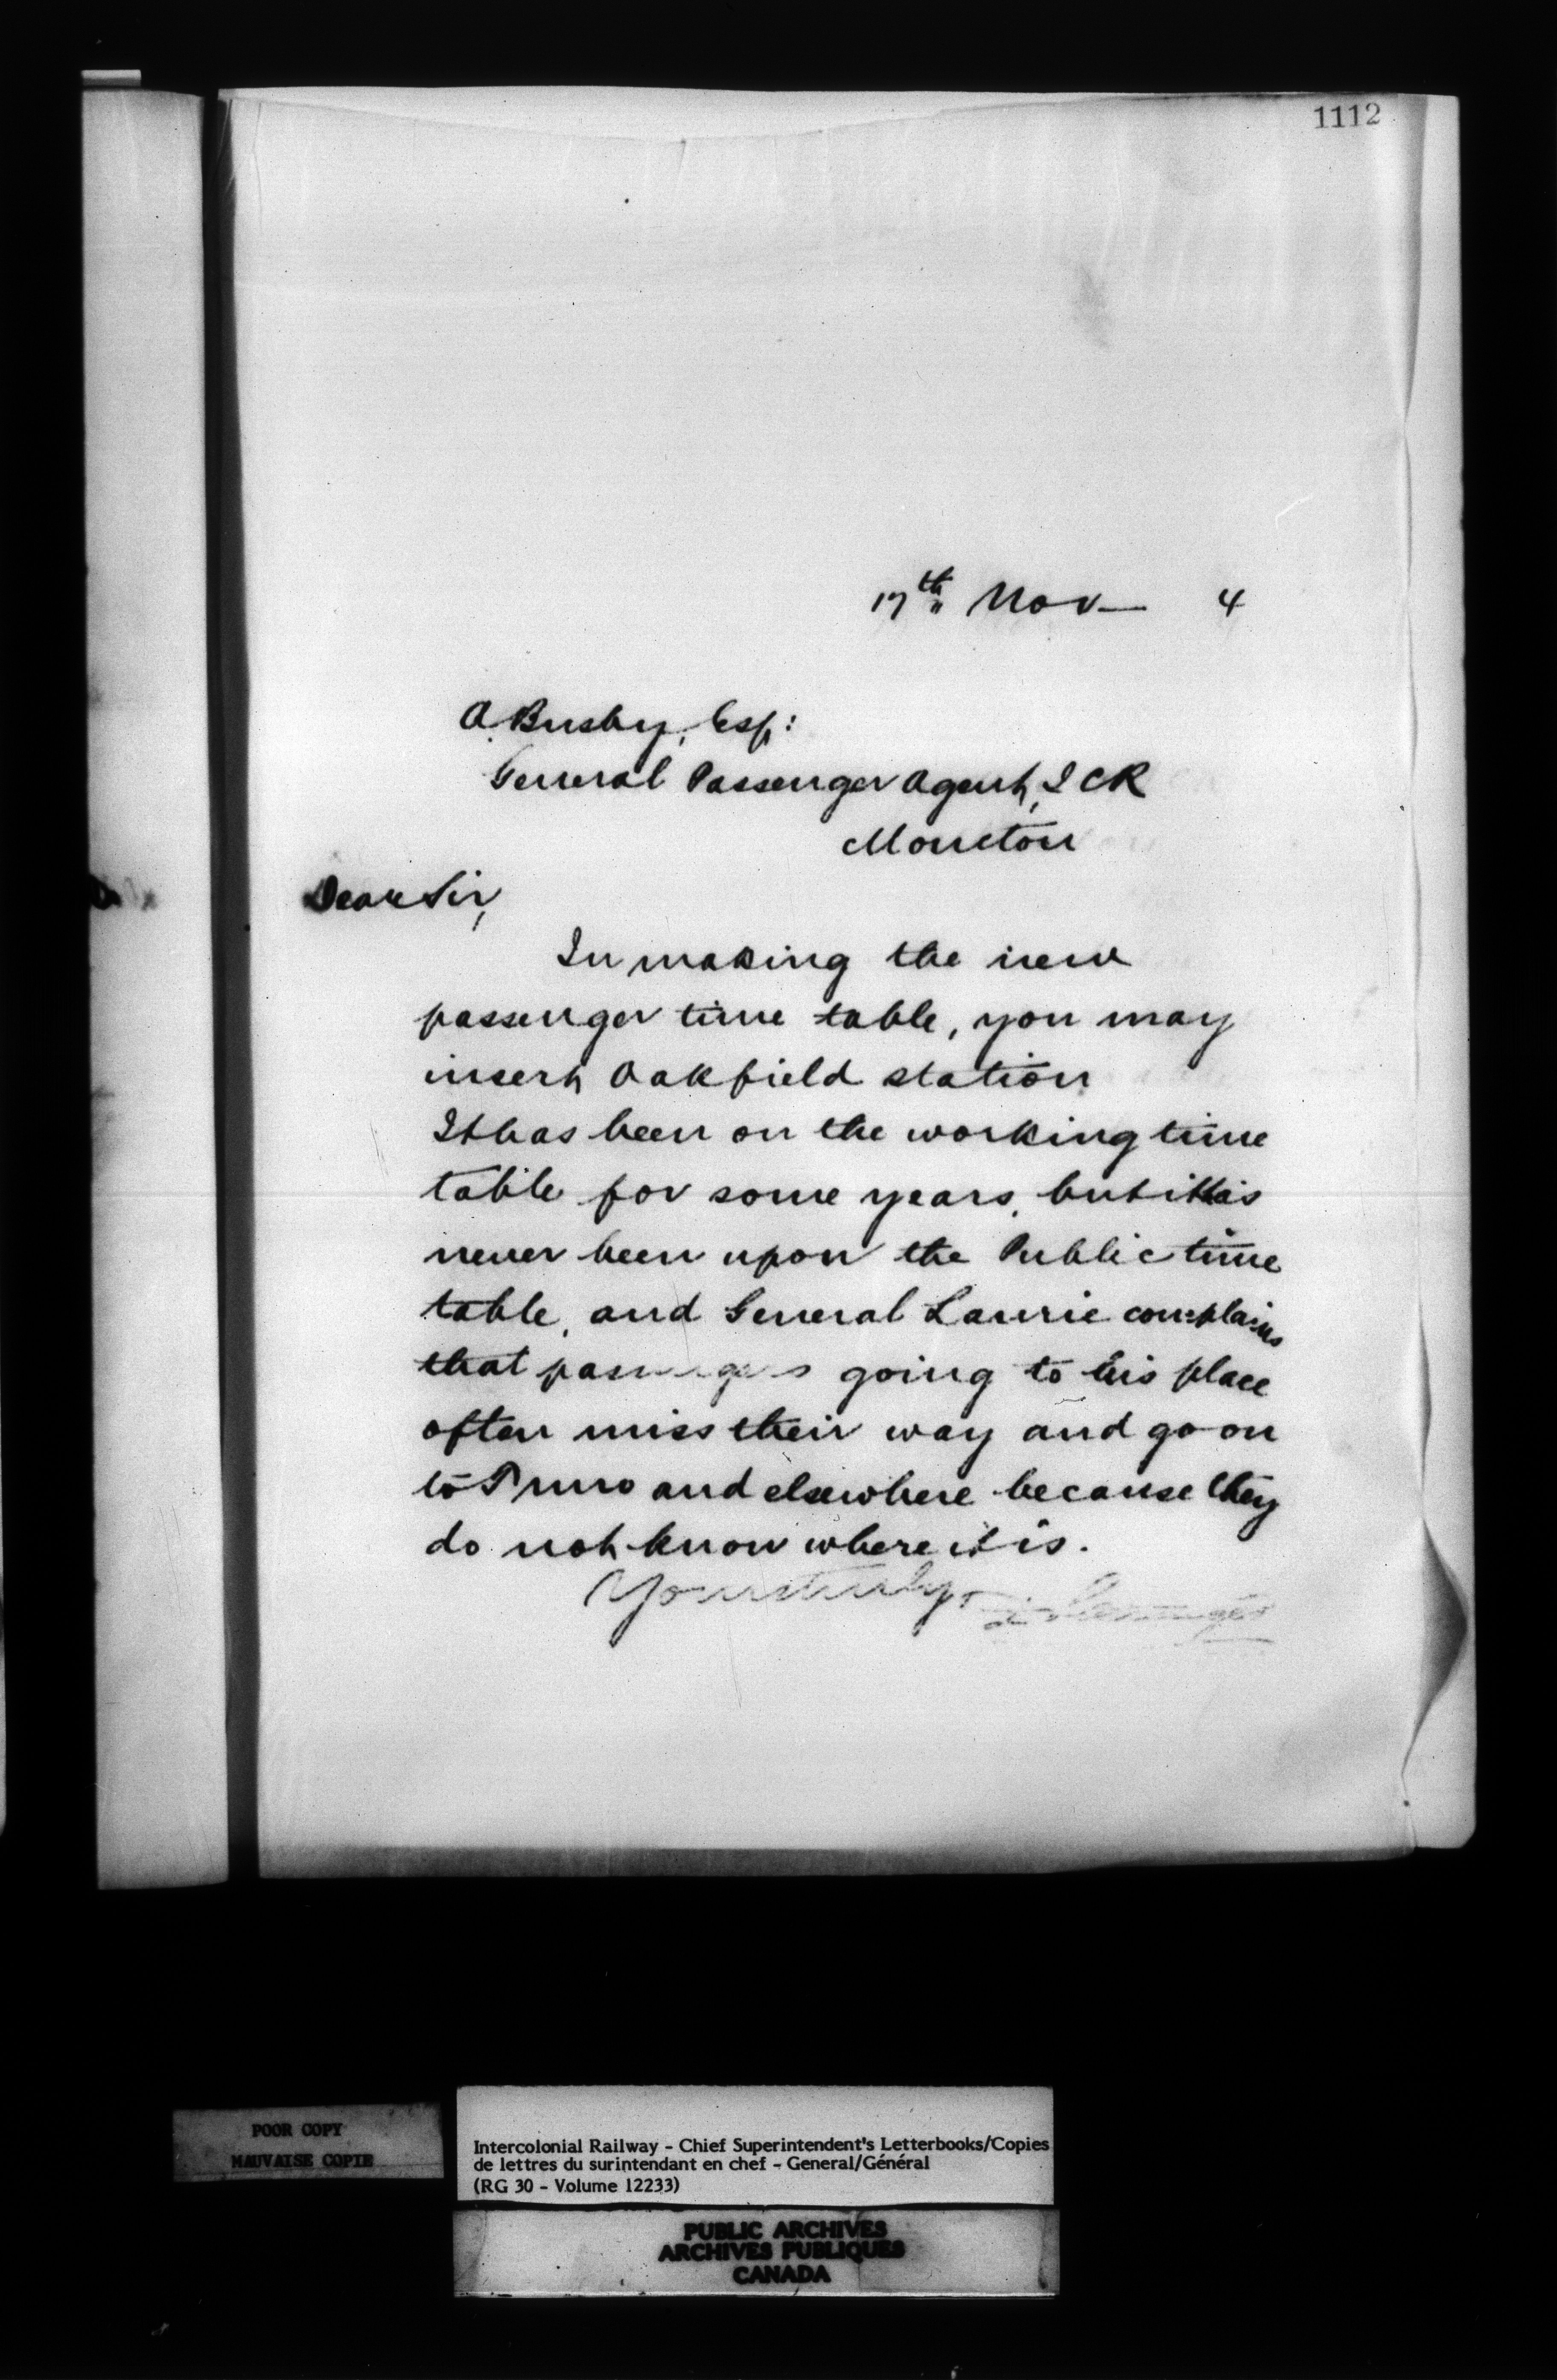 1112
17th Nov— 4
A. Busby, Esq:
General Passenger Agent, I C R
Moncton
Dear Sir,
In making the new
passenger time table, you may
insert Oakfield station
It has been on the working time
table for some years, but it has
never been upon the Public time
table, and General Laurie complains
that passengers going to his place
often miss their way and go on
to Truro and elsewhere because they
do not know where it is.
Yours truly,
POOR COPY
MAUVAISE COPIE
Intercolonial Railway - Chief Superintendent's Letterbooks/Copies
de lettres du surintendant en chef - General/Général
(RG 30 - Volume 12233)
PUBLIC ARCHIVES
ARCHIVES PUBLIQUES
CANADA